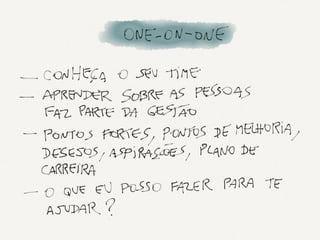 ONE-ON-ONE
— CONHEÇA O SEU TIME
— APRENDER SOBRE AS PESSOAS
FAZ PARTE DA GESTÃO
— PONTOS FORTES, PONTOS DE MELHORIA,
DESEJOS, ASPIRAÇÕES, PLANO DE
CARREIRA
— O QUE EU POSSO FAZER PARA TE
AJUDAR?